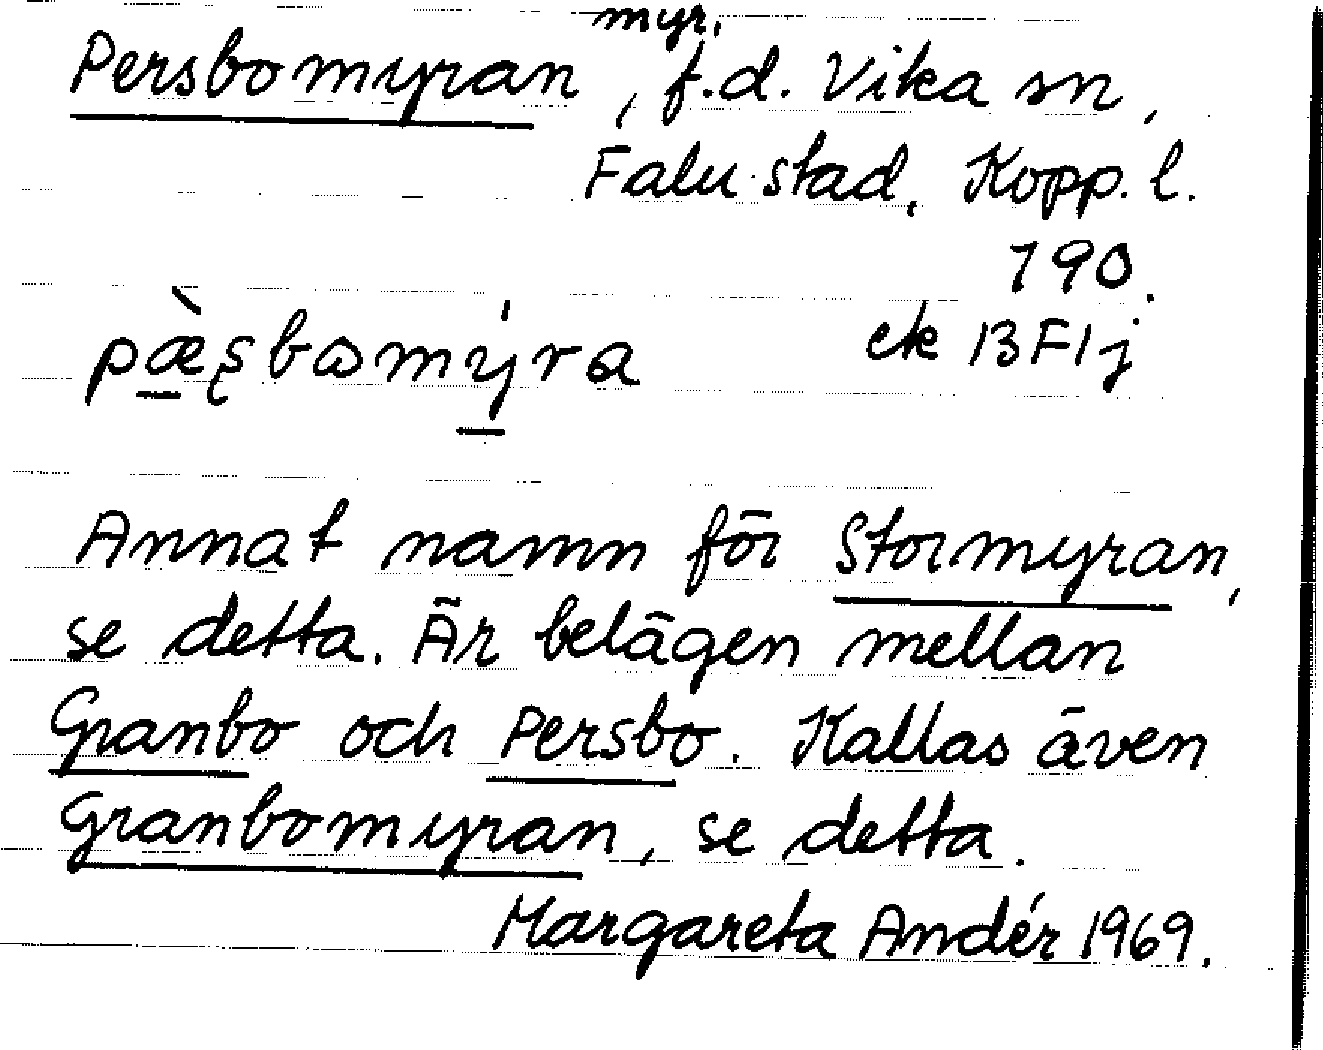 myr.
Persbomyran, f.d. Vika sn,
Falu stad, Kopp. l.
190.
pæ̀şbomýra ek 13F1j
Annat namn för Stormyran,
se detta. Är belägen mellan
Granbo och Persbo. Kallas även
Granbomyran, se detta.
Margareta Andér 1969.